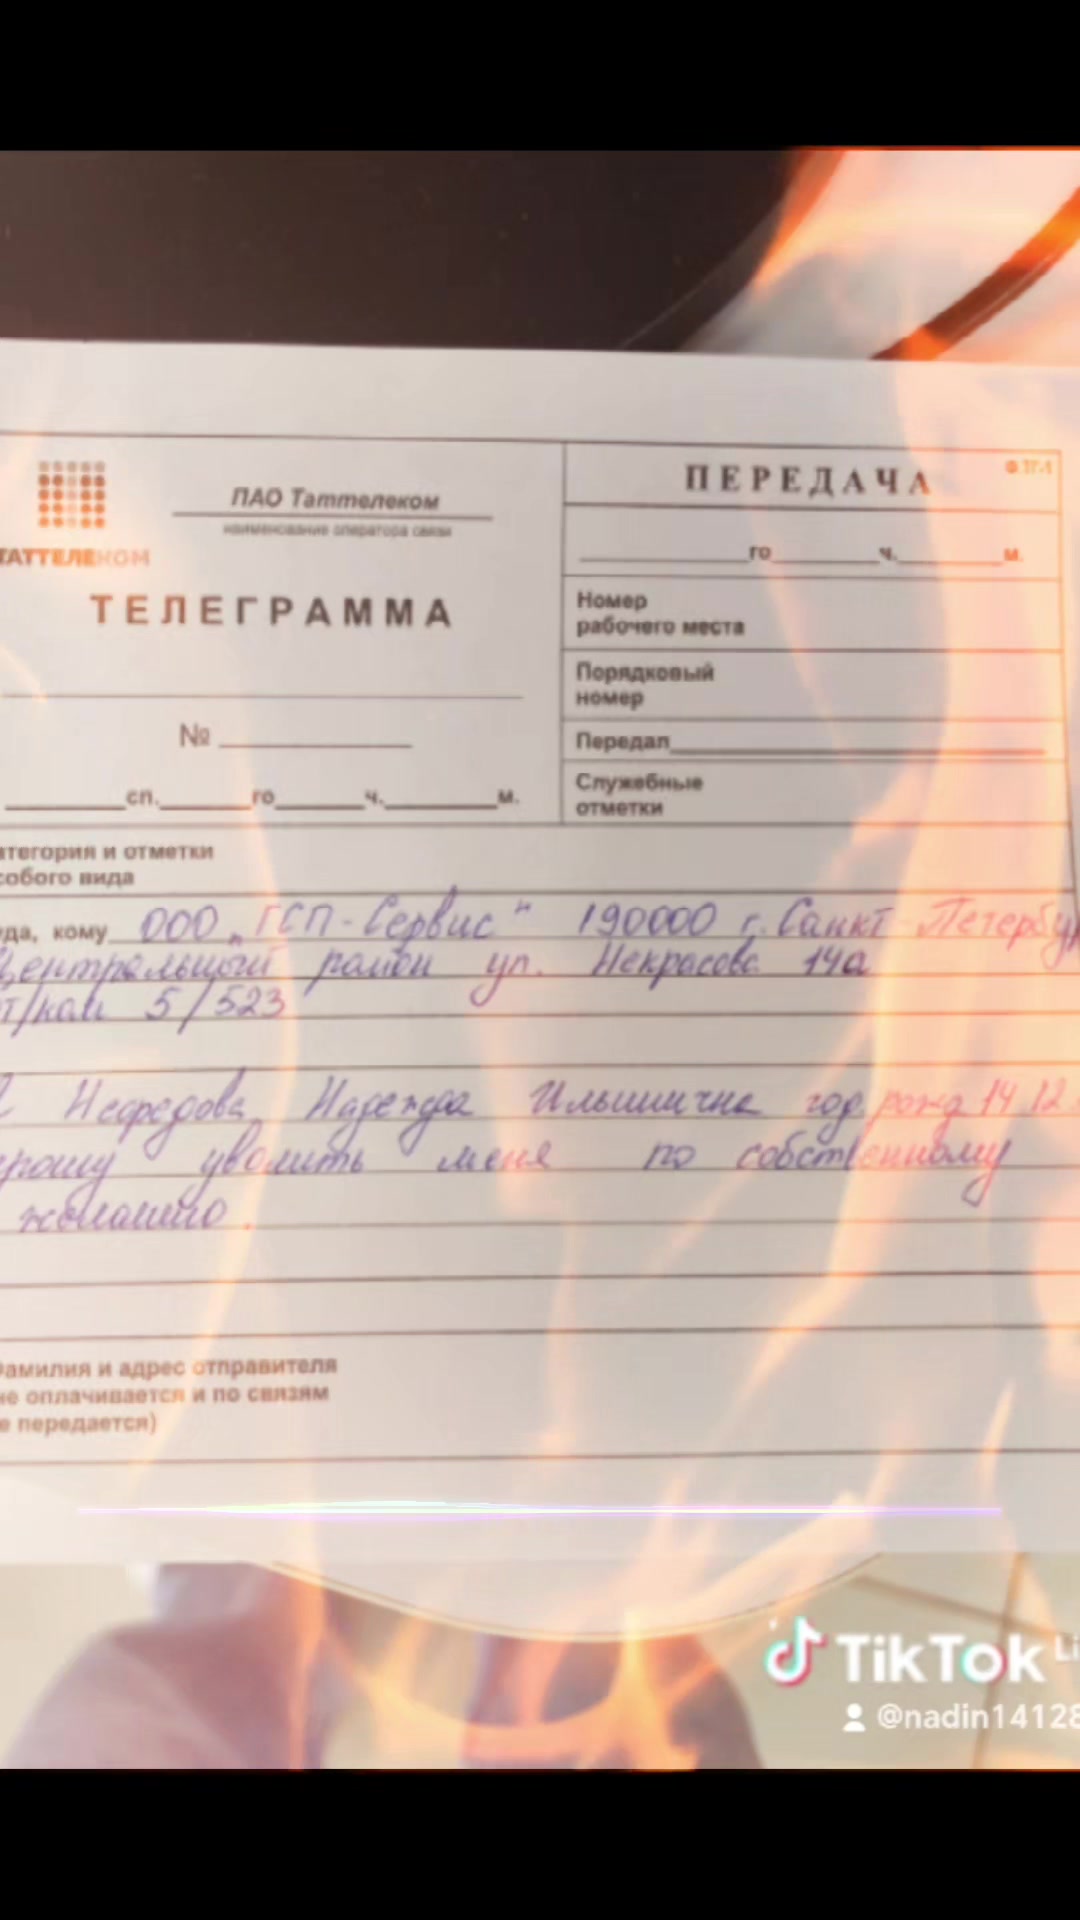 ПЕРЕДАЧА
Ф.ТГ-1
ПАО Таттелеком
наименование оператора связи
ТАТТЕЛЕКОМ
го ч. м.
ТЕЛЕГРАММА
Номер
рабочего места
Порядковый
номер
№
Передал
сп. го ч. м.
Служебные
отметки
атегория и отметки
собого вида
уда, кому ООО "ГСП-Сервис" 190000 г. Санкт-Петербу
Центральный район ул. Некрасова 14а
т/ком 5/523
Нефедова Надежда Ильинична год. рожд 14 12
прошу уволить меня по собственному
желанию.
Фамилия и адрес отправителя
не оплачивается и по связям
е передается)
TikTok Li
@nadin14128